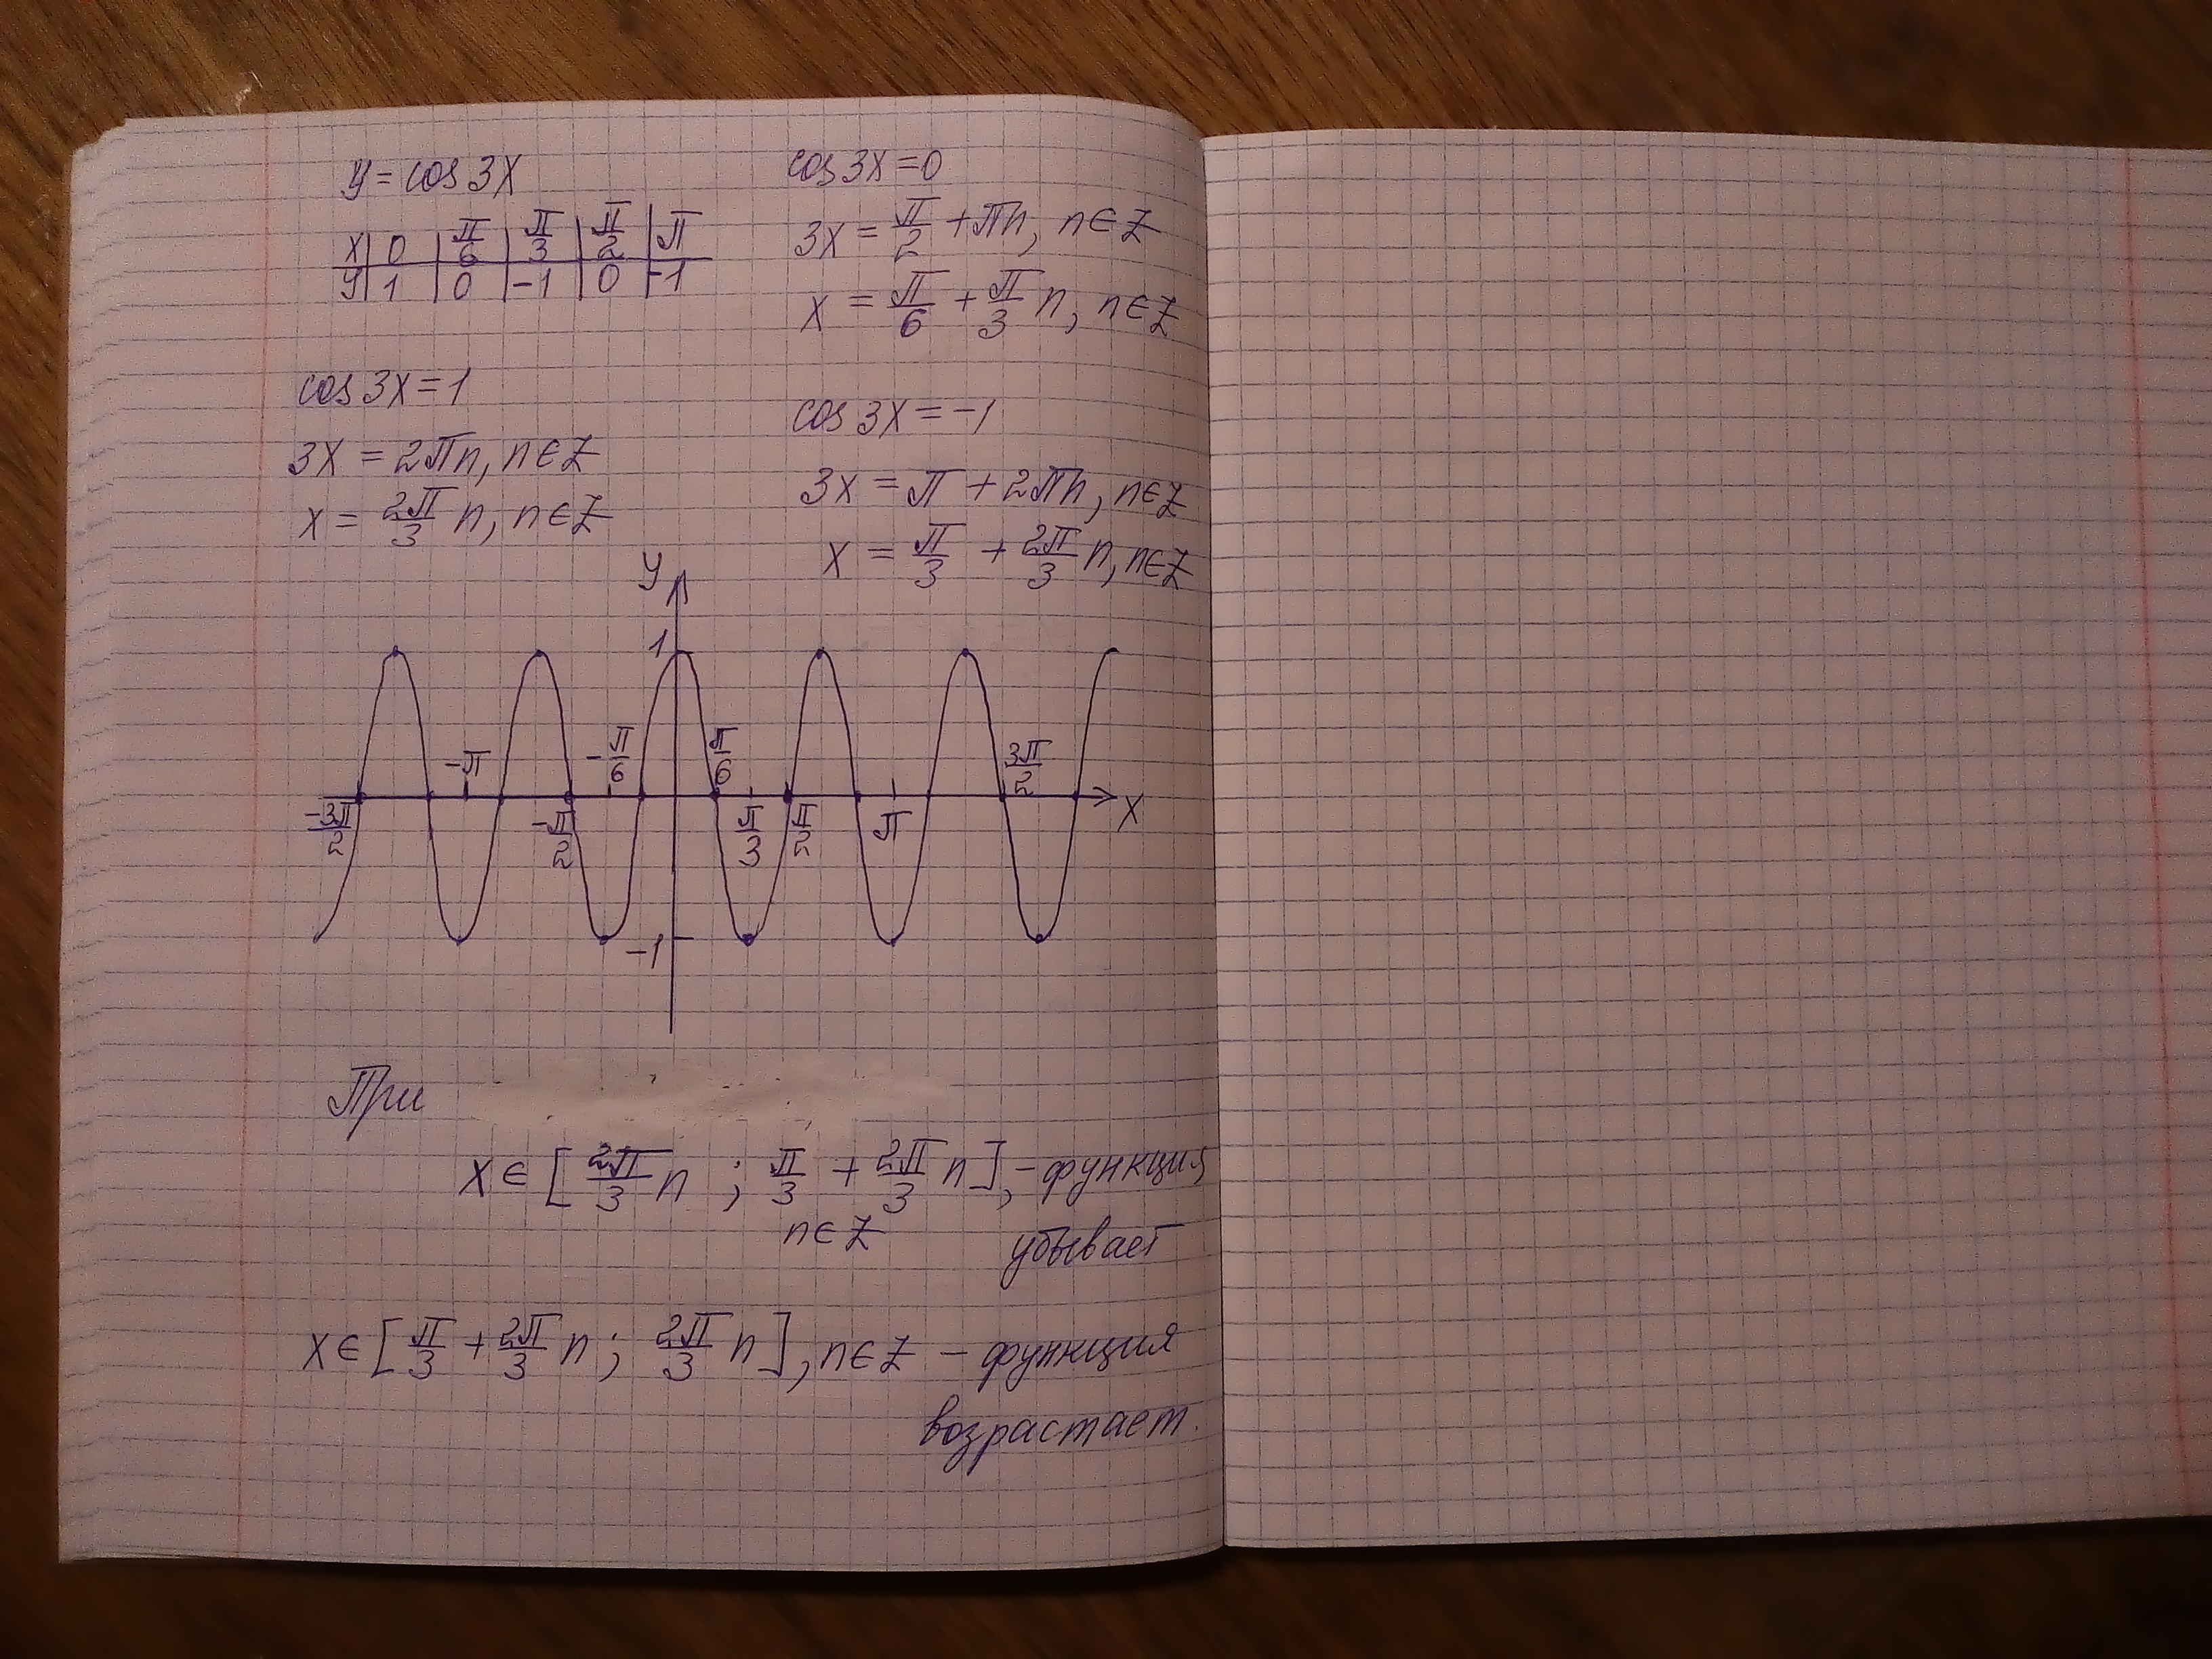 y = cos 3x
x | 0 | π/6 | π/3 | π/2 | π
y | 1 | 0 | -1 | 0 | -1
cos 3x = 0
3x = π/2 + πn, n ∈ Z
x = π/6 + π/3 n, n ∈ Z
cos 3x = 1
3x = 2πn, n ∈ Z
x = 2π/3 n, n ∈ Z
cos 3x = -1
3x = π + 2πn, n ∈ Z
x = π/3 + 2π/3 n, n ∈ Z
y
1
-π -π/6 π/6 3π/2
-3π/2 -π/2 π/3 π/2 π x
-1
При
x ∈ [2π/3 n ; π/3 + 2π/3 n], - функция
n ∈ Z убывает
x ∈ [π/3 + 2π/3 n ; 2π/3 n], n ∈ Z - функция
возрастает.